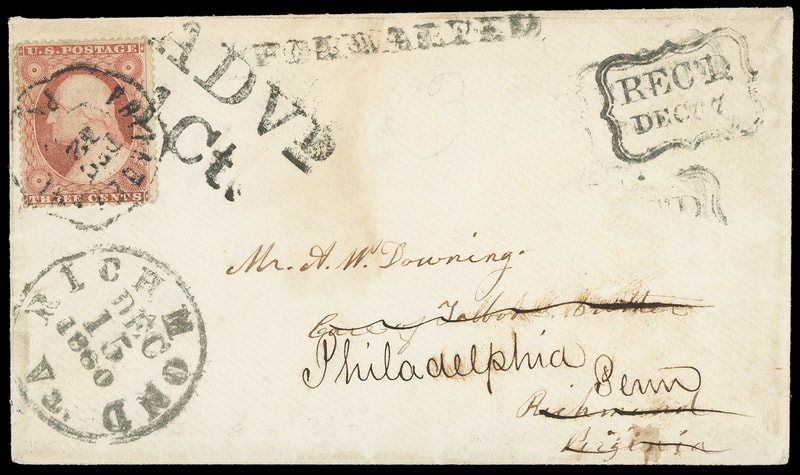 U.S. POSTAGE
THREE CENTS
ADVD
1Ct.
FORWARDED
REC'D.
DEC 7
RICHMOND VA
DEC
15
1860
Mr. A. W. Downing.
Care of Talbot & Brother
Philadelphia
Penn
Richmond
Virginia